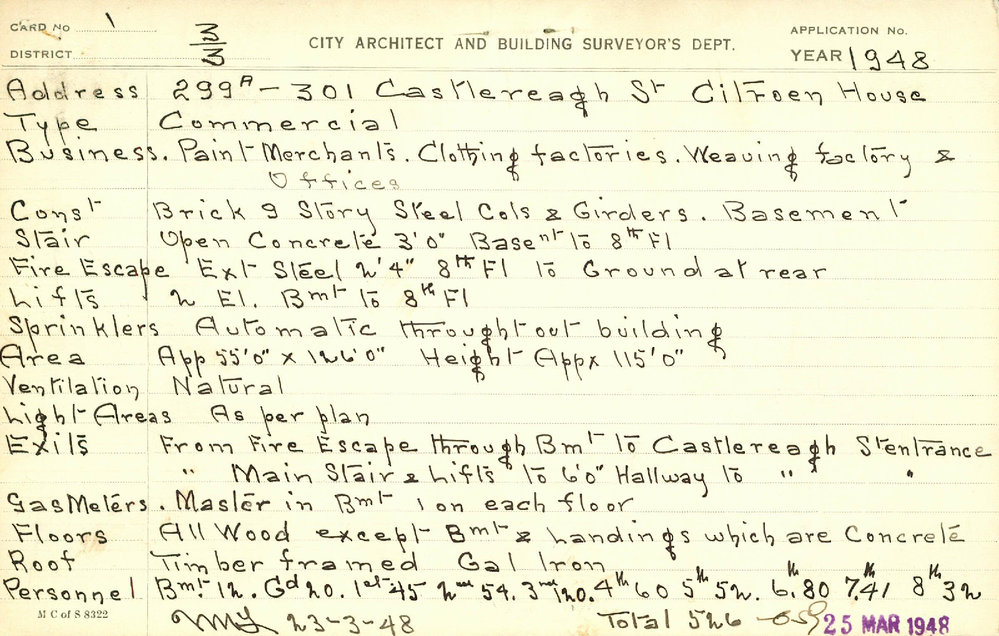 CARD No 1
DISTRICT
3/3
CITY ARCHITECT AND BUILDING SURVEYOR'S DEPT.
APPLICATION No.
YEAR 1948
Address 299A - 301 Castlereagh St Citroen House
Type Commercial
Business. Paint Merchants. Clothing factories. Weaving factory &
Offices
Const Brick 9 Story Steel Cols & Girders. Basement
Stair Open Concrete 3'0" Basent to 8th Fl
Fire Escape Ext Steel 2'4" 8th Fl to Ground at rear
Lifts 2 El. Bmt to 8th Fl
Sprinklers Automatic throught out building
Area App 55'0" x 126'0" Height Appx 115'0"
Ventilation Natural
Light Areas As per plan
Exits From Fire Escape through Bmt to Castlereagh St entrance
" Main Stair & Lifts to 6'0" Hallway to " "
Gas Meters. Master in Bmt 1 on each floor
Floors All Wood except Bmt & Landings which are Concrete
Roof Timber framed Gal Iron
Personnel Bmt. 12. Gd 20. 1st 45 2nd 54. 3rd 120. 4th 60 5th 52. 6th. 80 7th. 41 8th 32
M C of S 8322
23-3-48
Total 526
25 MAR 1948